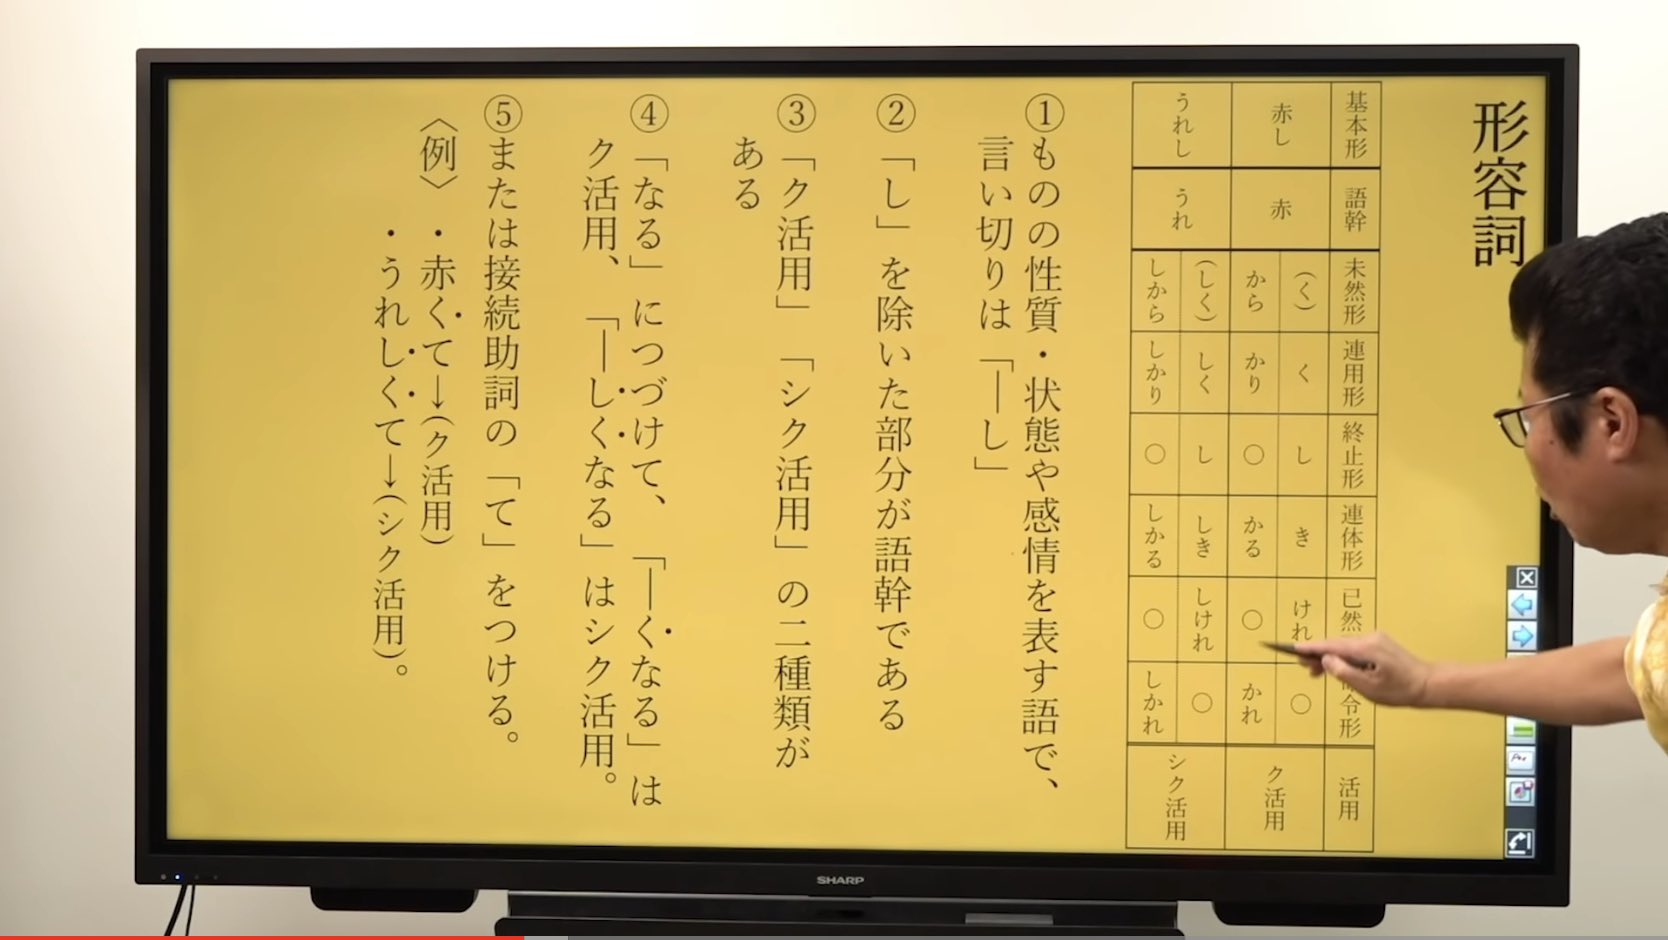 形容詞
基本形 語幹 未然形 連用形 終止形 連体形 已然 令形 活用
赤し 赤 (く) く し き けれ ○ ク活用
から かり ○ かる ○ かれ
うれし うれ (しく) しく し しき しけれ ○ シク活用
しから しかり ○ しかる ○ しかれ
①ものの性質・状態や感情を表す語で、
言い切りは「―し」
②「し」を除いた部分が語幹である
③「ク活用」「シク活用」の二種類が
ある
④「なる」につづけて、「―くなる」は
ク活用、「―しくなる」はシク活用。
⑤または接続助詞の「て」をつける。
〈例〉・赤くて→(ク活用)
・うれしくて→(シク活用)。
SHARP